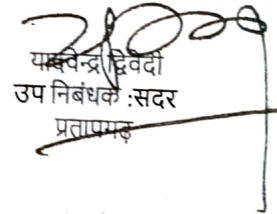 यादवेन्द्र द्विवेदी
उप निबंधक :सदर
प्रतापगढ़